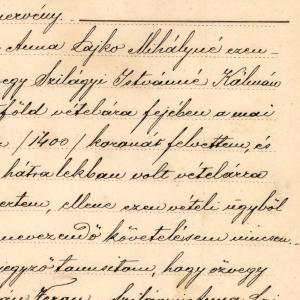 nervény.
Anna Lajko Mihályné ezen-
egy Szilágyi Istvánné Kálmán
föld vételára fejében a mai
/1400/ koronát felvettem, és
hátralékban volt vételárra
ertem, ellene ezen vételi ügyből
nevezendő követelésem nincsen.
jegyző tanusitom, hogy özvegy